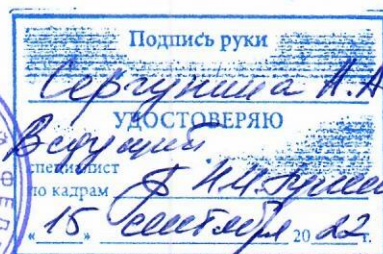 Подпись руки
Сергунина А.А
УДОСТОВЕРЯЮ
Ведущий
специалист
по кадрам
«15» сентября 2022 г.